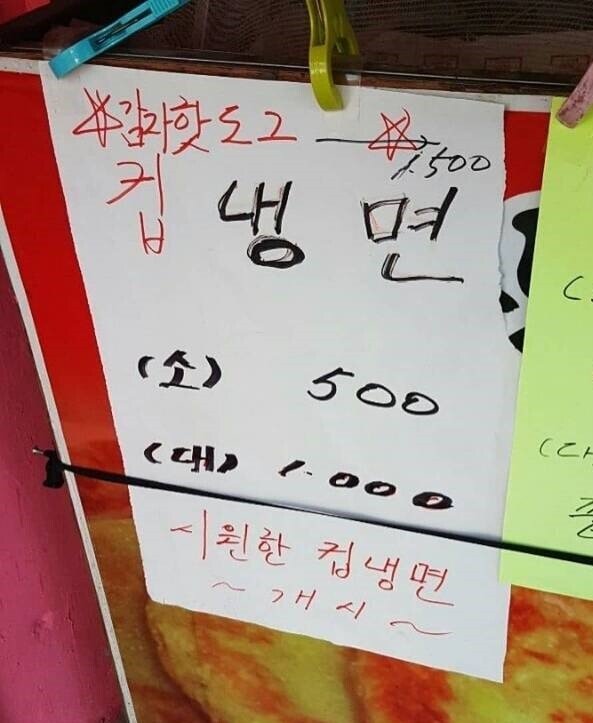 ☆감자핫도그 → ☆
1.500
컵 냉 면
(소) 500
(대) 1.000
시원한 컵냉면
~ 개 시 ~